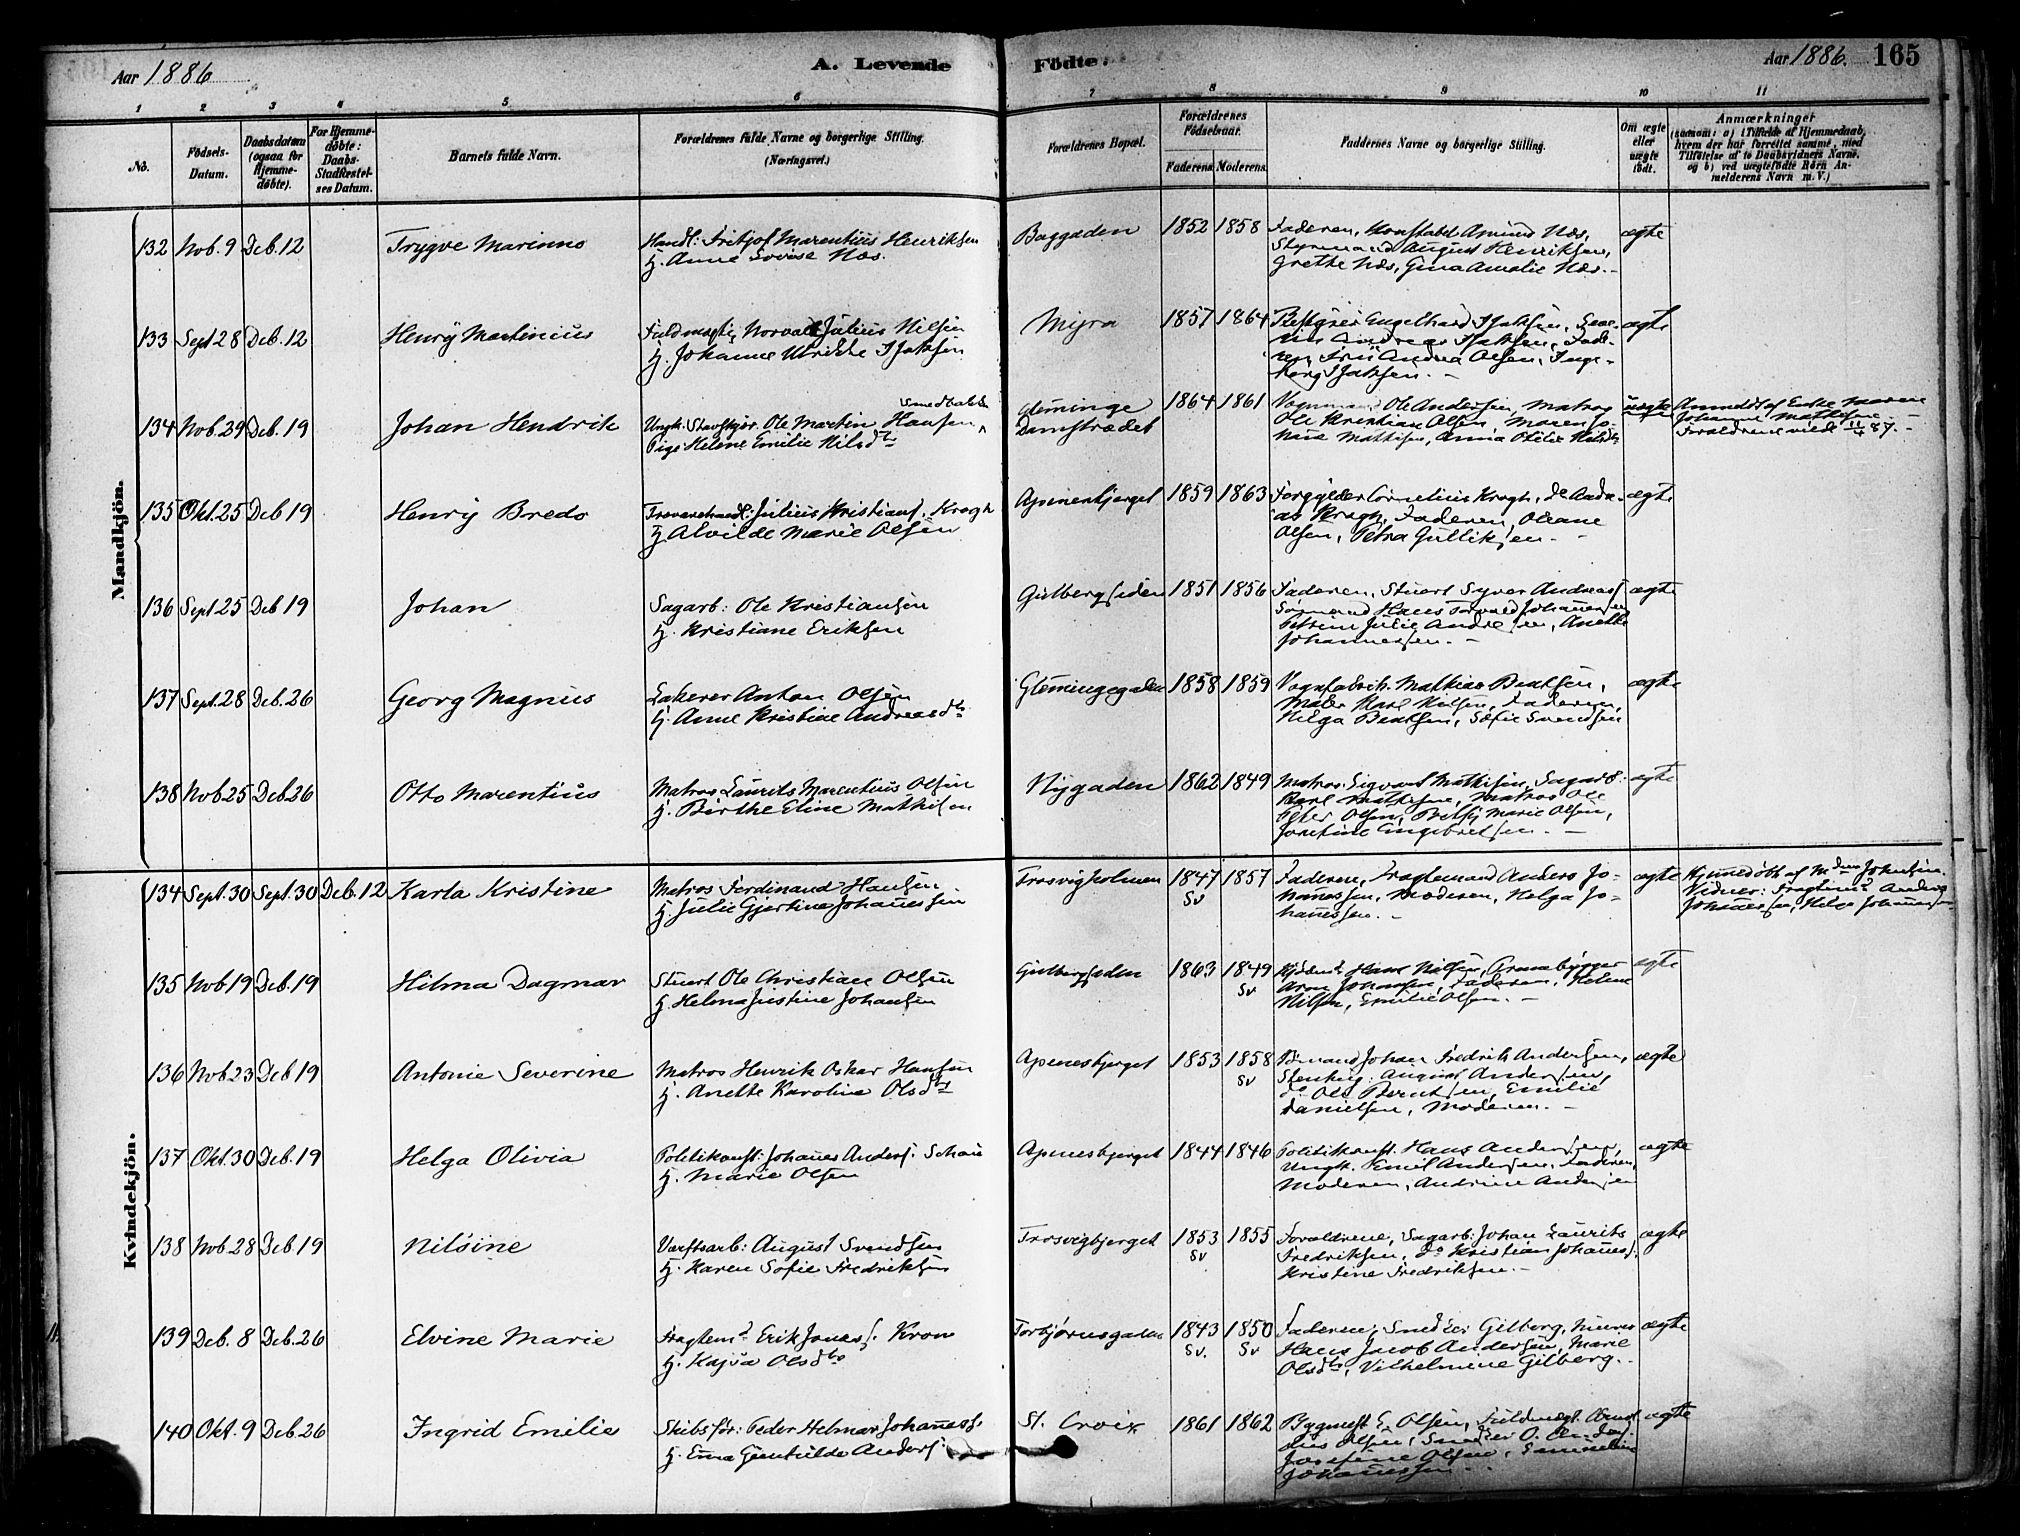 Aar 1886
A. Levende
Födte.
Aar 1886.
165
1 2 3 4 5 6 7 8 9 10 11
No.
Födsels-
Datum.
Daabsdatum
(ogsaa for
Hjemme-
döbte).
For Hjemme-
döbte:
Daabs-
Stadfæstel-
ses Datum.
Barnets fulde Navn.
Forældrenes fulde Navne og borgerlige Stilling.
(Næringsvei.)
Forældrenes Bopæl.
Forældrenes
Födselsaar.
Faderens. Moderens.
Faddernes Navne og borgerlige Stilling.
Om ægte
eller
uægte
födt.
Anmærkninger
(saasom: a) i Tilfælde af Hjemmedaab,
hvem der har forrettet samme, med
Tilföielse af to Daabsvidners Navne,
og b) ved uægtefödte Börn An-
melderens Navn m. V.)
Mandkjön.
132 Nob. 9 Deb. 12 Trygve Marinus
Handl: Fritjof Marentius Henriksen
H. Anne Lovise Næs.
Baggaden 1852 1858
Faderen, Konstabel Amund Næs,
Styrmand August Henriksen,
Grethe Næs, Gina Amalie Næs. –
ægte
133 Sept 28 Deb. 12 Henry Martinius
Fuldmægtig Norvald Julius Nilsen
H. Johanne Ulrikke Isaksen
Myra 1857 1864
Engelhard Isaksen,
Andreas Isaksen, Fade-
ren, Andrea Olsen, Inge-
borg Isaksen. –
ægte
134 Nob. 29 Deb. 19 Johan Hendrik
Ungk. Ole Martin Hansen
Pige Helene Emilie Nilsdtr
Gleminge
Damstrædet
1864 1861
Ole Andersen, Matros
Ole Kristian Olsen, Maren Jo-
hane Mathisen, Anna Otilie Nilsdtr
uægte
Anmeldt af Enke Maren
Johanne Mathisen. –
Forældrene viede 11/4 87. –
135 Okt. 25 Deb 19 Henry Bredo
Julius Kristians. Krogh
H. Alvilde Marie Olsen
Apenesbjerget 1859 1863
Forgylder Cornelius Krogh, do Andre-
as Krogh, Faderen, Oleane
Olsen, Petra Gulliksen. –
ægte
136 Sept 25 Deb 19 Johan
Sagarb: Ole Kristiansen
H. Kristiane Eriksen
Gulbergsiden 1851 1856
Faderen, Stuert Syver Andreas,
Sømand Hans Torvald Johannesen,
Petrine Julie Andresen, Anette
Johannessen. –
ægte
137 Sept. 28 Deb. 26 Georg Magnus
Lakerer Anton Olsen
H. Anne Kristine Andreasdtr
Glemingegaden 1858 1859
Vognfabrik. Mathias Bentsen,
Maler Karl Nilsen, Faderen,
Helga Bentsen, Sofie Svendsen
ægte
138 Nob 25 Deb 26 Otto Marentius
Matros Laurits Marentius Olsen
H. Birthe Eline Mathisen
Nygaden 1862 1849
Matros Sigvart Mathisen, Sagarb.
Karl Mathisen, Matros Ole
Peter Olsen, Betsy Marie Olsen,
Josefine Engebretsen. –
ægte
Kvindekjön.
134 Sept. 30 Sept. 30 Deb. 12 Karla Kristine
Matros Ferdinand Hansen
H. Julie Gjertine Johannessen
Trosvigholmen 1847 1857
Sv
Faderen, Fragtemand Anders Jo-
hannessen, Moderen, Helga Jo-
hannessen. –
ægte
Hjemmedøbt af Mdm Johnsen.
Vidner: Fragtmd Anders
Johannessen, Helga Johannessen
135 Nob 19 Deb. 19 Hilma Dagmar
Stuert Ole Christian Olsen
H. Helma Justine Johansen
Gulbergsiden 1863 1849
Sv
Hans Nilsen,
Aron Johansen, Faderen, Helene
Nilsen, Emilie Olsen. –
ægte
136 Nob. 23 Deb 19 Antonie Severine
Matros Henrik Oskar Hansen
H. Anette Karoline Olsdtr
Apenesbjerget 1853 1858
Sv
Sømand Johan Fredrik Andersen,
Stenhug: August Andersen,
do Ole Berntsen, Emilie
Danielsen, Moderen. –
ægte
137 Okt. 30 Deb. 19 Helga Olivia
Politikonst: Johannes Anders.
H. Marie Olsen
Apenesbjerget 1844 1846
Politikonst. Hans Andersen,
Ungk. Emil Andersen, Faderen,
Moderen, Andrine Andersen
ægte
138 Nob. 28 Deb. 19 Nilsine
Værftsarb: August Svendsen
H. Karen Sofie Fredriksen
Trosvigbjerget 1853 1855
Sv
Forældrene, Sagarb: Johan Laurits
Fredriksen, do Kristian Johannes.
Kristine Fredriksen. –
ægte
139 Deb. 8 Deb. 26 Elvine Marie
Fragtemd Erik Jonas. Kron
H. Kajsa Olsdtr
Torbjørnsgaden 1843 1850
Sv. Sv
Faderen, Smed Gilberg, Murer
Hans Jacob Andersen, Marie
Olsdtr, Vilhelmine Gilberg. –
ægte
140 Okt. 9 Deb. 26 Ingrid Emilie
Skibsfør: Peder Helmar Johanness.
H. Ema Gunhilde Anders.
St. Croix 1861 1862
Bygmest E. Olsen, Fuldmægt.
Olsen, Smed O. Anders.
Josefine Olsen,
Johannessen. –
ægte